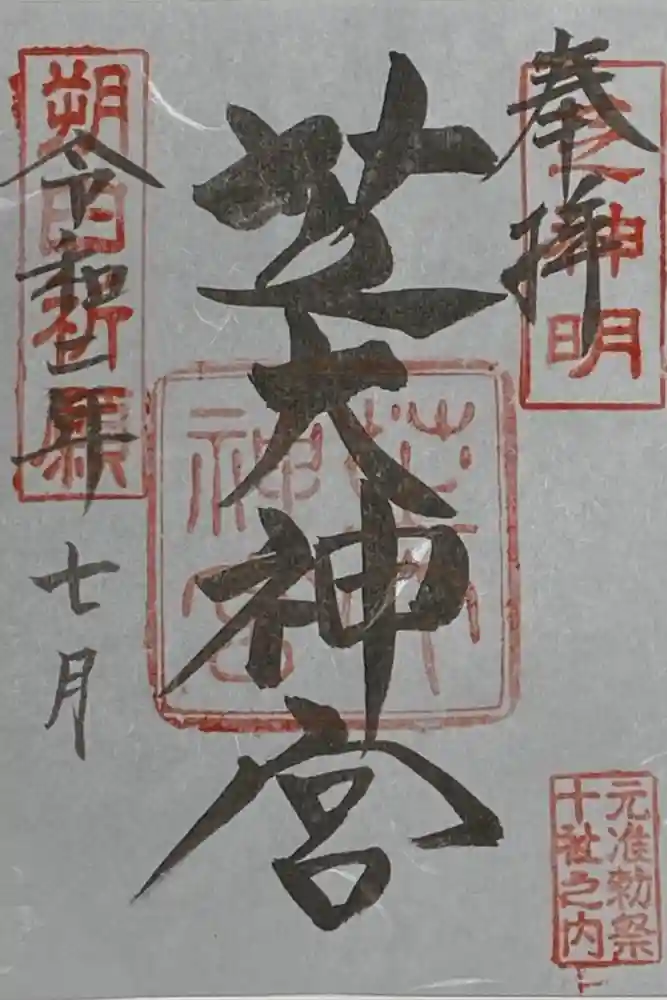 奉拝
芝神明
芝大神宮
芝大神宮
元准勅祭
十社之内
朔日祈願
令和二年七月